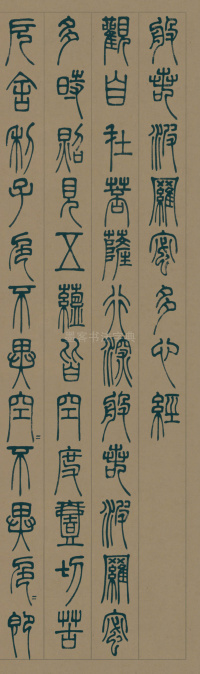 般若波羅蜜多心經
觀自在菩薩行深般若波羅蜜
多時照見五蘊皆空度壹切苦
厄舍利子色不異空〻不異色〻即